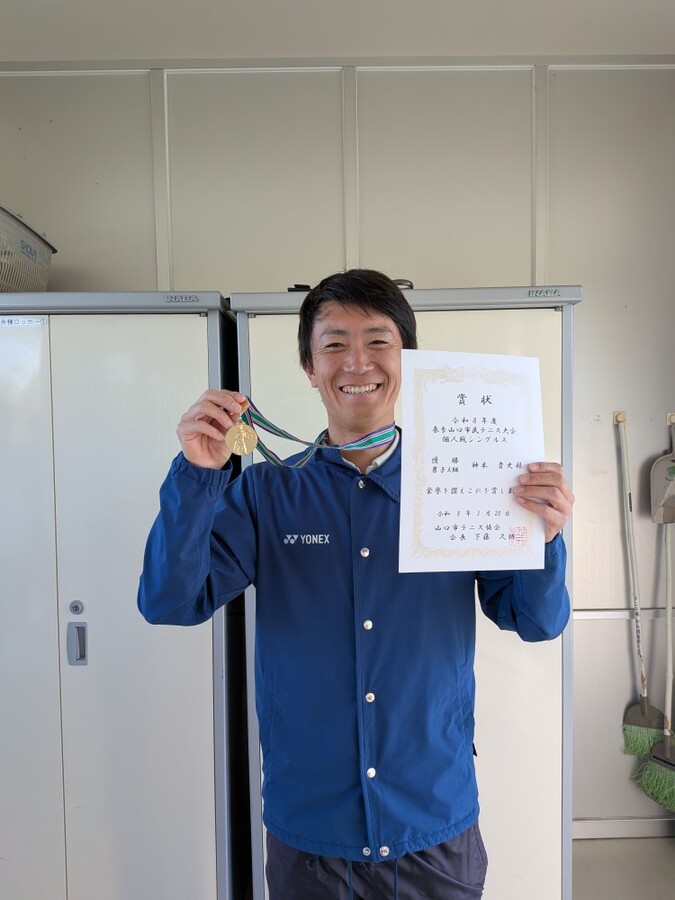 賞状
令和8年度
春季山口市民テニス大会
個人戦シングルス
優勝
男子A級 神本 貴史 様
栄誉を讃えこれを賞しま
令和 8年 3月 28日
山口市テニス協会
会長 下藤
YONEX
INABA
INABA